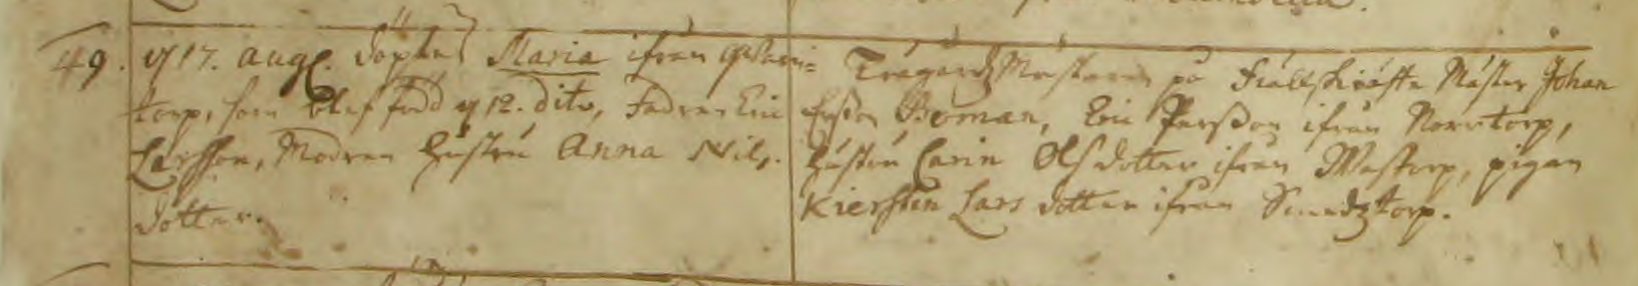 49. d 17. Aug. döptes Maria ifrån
torp, som blef född d 12. dito, Fadren Eric
Larsson, Modren Hustru Anna Nils-
dotter.
Trägårdz Mästaren på Mäster Johan
Boman, Eric Persson ifrån Norrtorp,
Hustru Carin Olsdotter ifrån Wastorp, pigan
Kierstin Lars dotter ifrån Sundztorp.